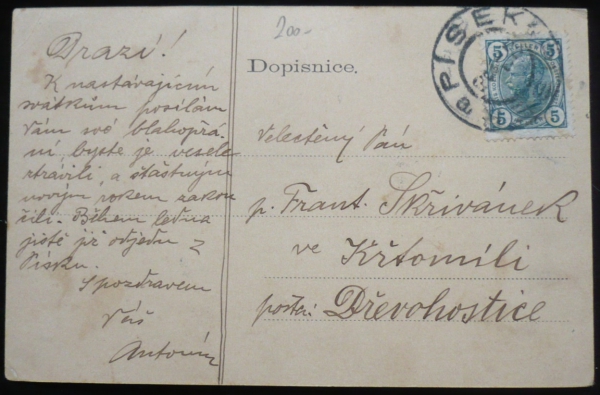 200.-
Dopisnice.
PÍSEK
5 5
5 5
Drazí!
K nastávajícím
svátkům posílám
Vám své blahopřá-
ní, byste je vesele
strávili, a šťastným
novým rokem zakon
čili. Během ledna
jistě již odjedu z
Písku.
S pozdravem
Váš
Antonín
Velectěný Pán
p. Frant. Skřivánek
ve Křtomili
pošta: Dřevohostice